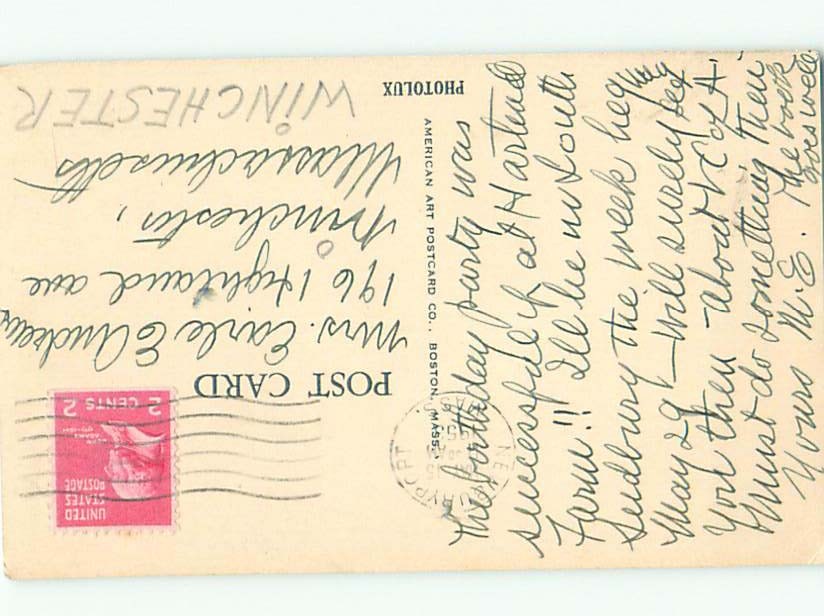 POST CARD
UNITED
STATES
POSTAGE
2 CENTS 2
Mrs. Earle E Andrews
196 Highland ave
Winchester,
Massachusetts
WINCHESTER
PHOTOLUX
AMERICAN ART POSTCARD CO., BOSTON, MASS.
NEWBURYPORT
The birthday party was
successful if at Hartwell
Farm!! I'll be in South
Sudbury the week beg
May 29 - Will surely see
you then - about V.C of A.
Must do something then
Yours M. E. The book
goes well.